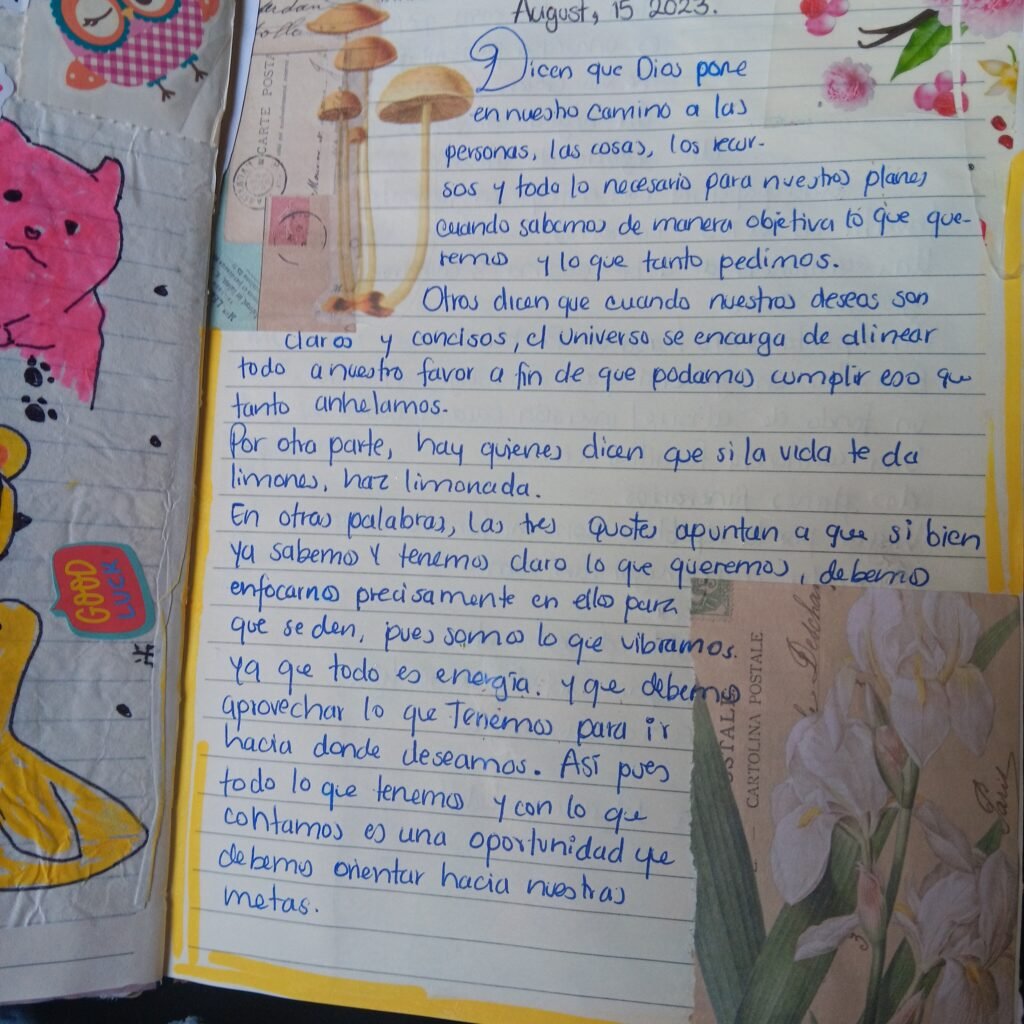 August, 15 2023.
Dicen que Dios pone
en nuestro camino a las
personas, las cosas, los recur-
sos y todo lo necesario para nuestros planes
cuando sabemos de manera objetiva lo que que-
remos y lo que tanto pedimos.
Otros dicen que cuando nuestros deseos son
claros y concisos, el universo se encarga de alinear
todo a nuestro favor a fin de que podamos cumplir eso que
tanto anhelamos.
Por otra parte, hay quienes dicen que si la vida te da
limones, haz limonada.
En otras palabras, las tres quotes apuntan a que si bien
ya sabemos y tenemos claro lo que queremos, debemos
enfocarnos precisamente en ello para
que se den, pues somos lo que vibramos.
Ya que todo es energía. y que debemos
aprovechar lo que Tenemos para ir
hacia donde deseamos. Así pues
todo lo que tenemos y con lo que
contamos es una oportunidad que
debemos orientar hacia nuestras
metas.
CARTE POSTA
GOOD
LUCK
CARTOLINA POSTALE
Paris